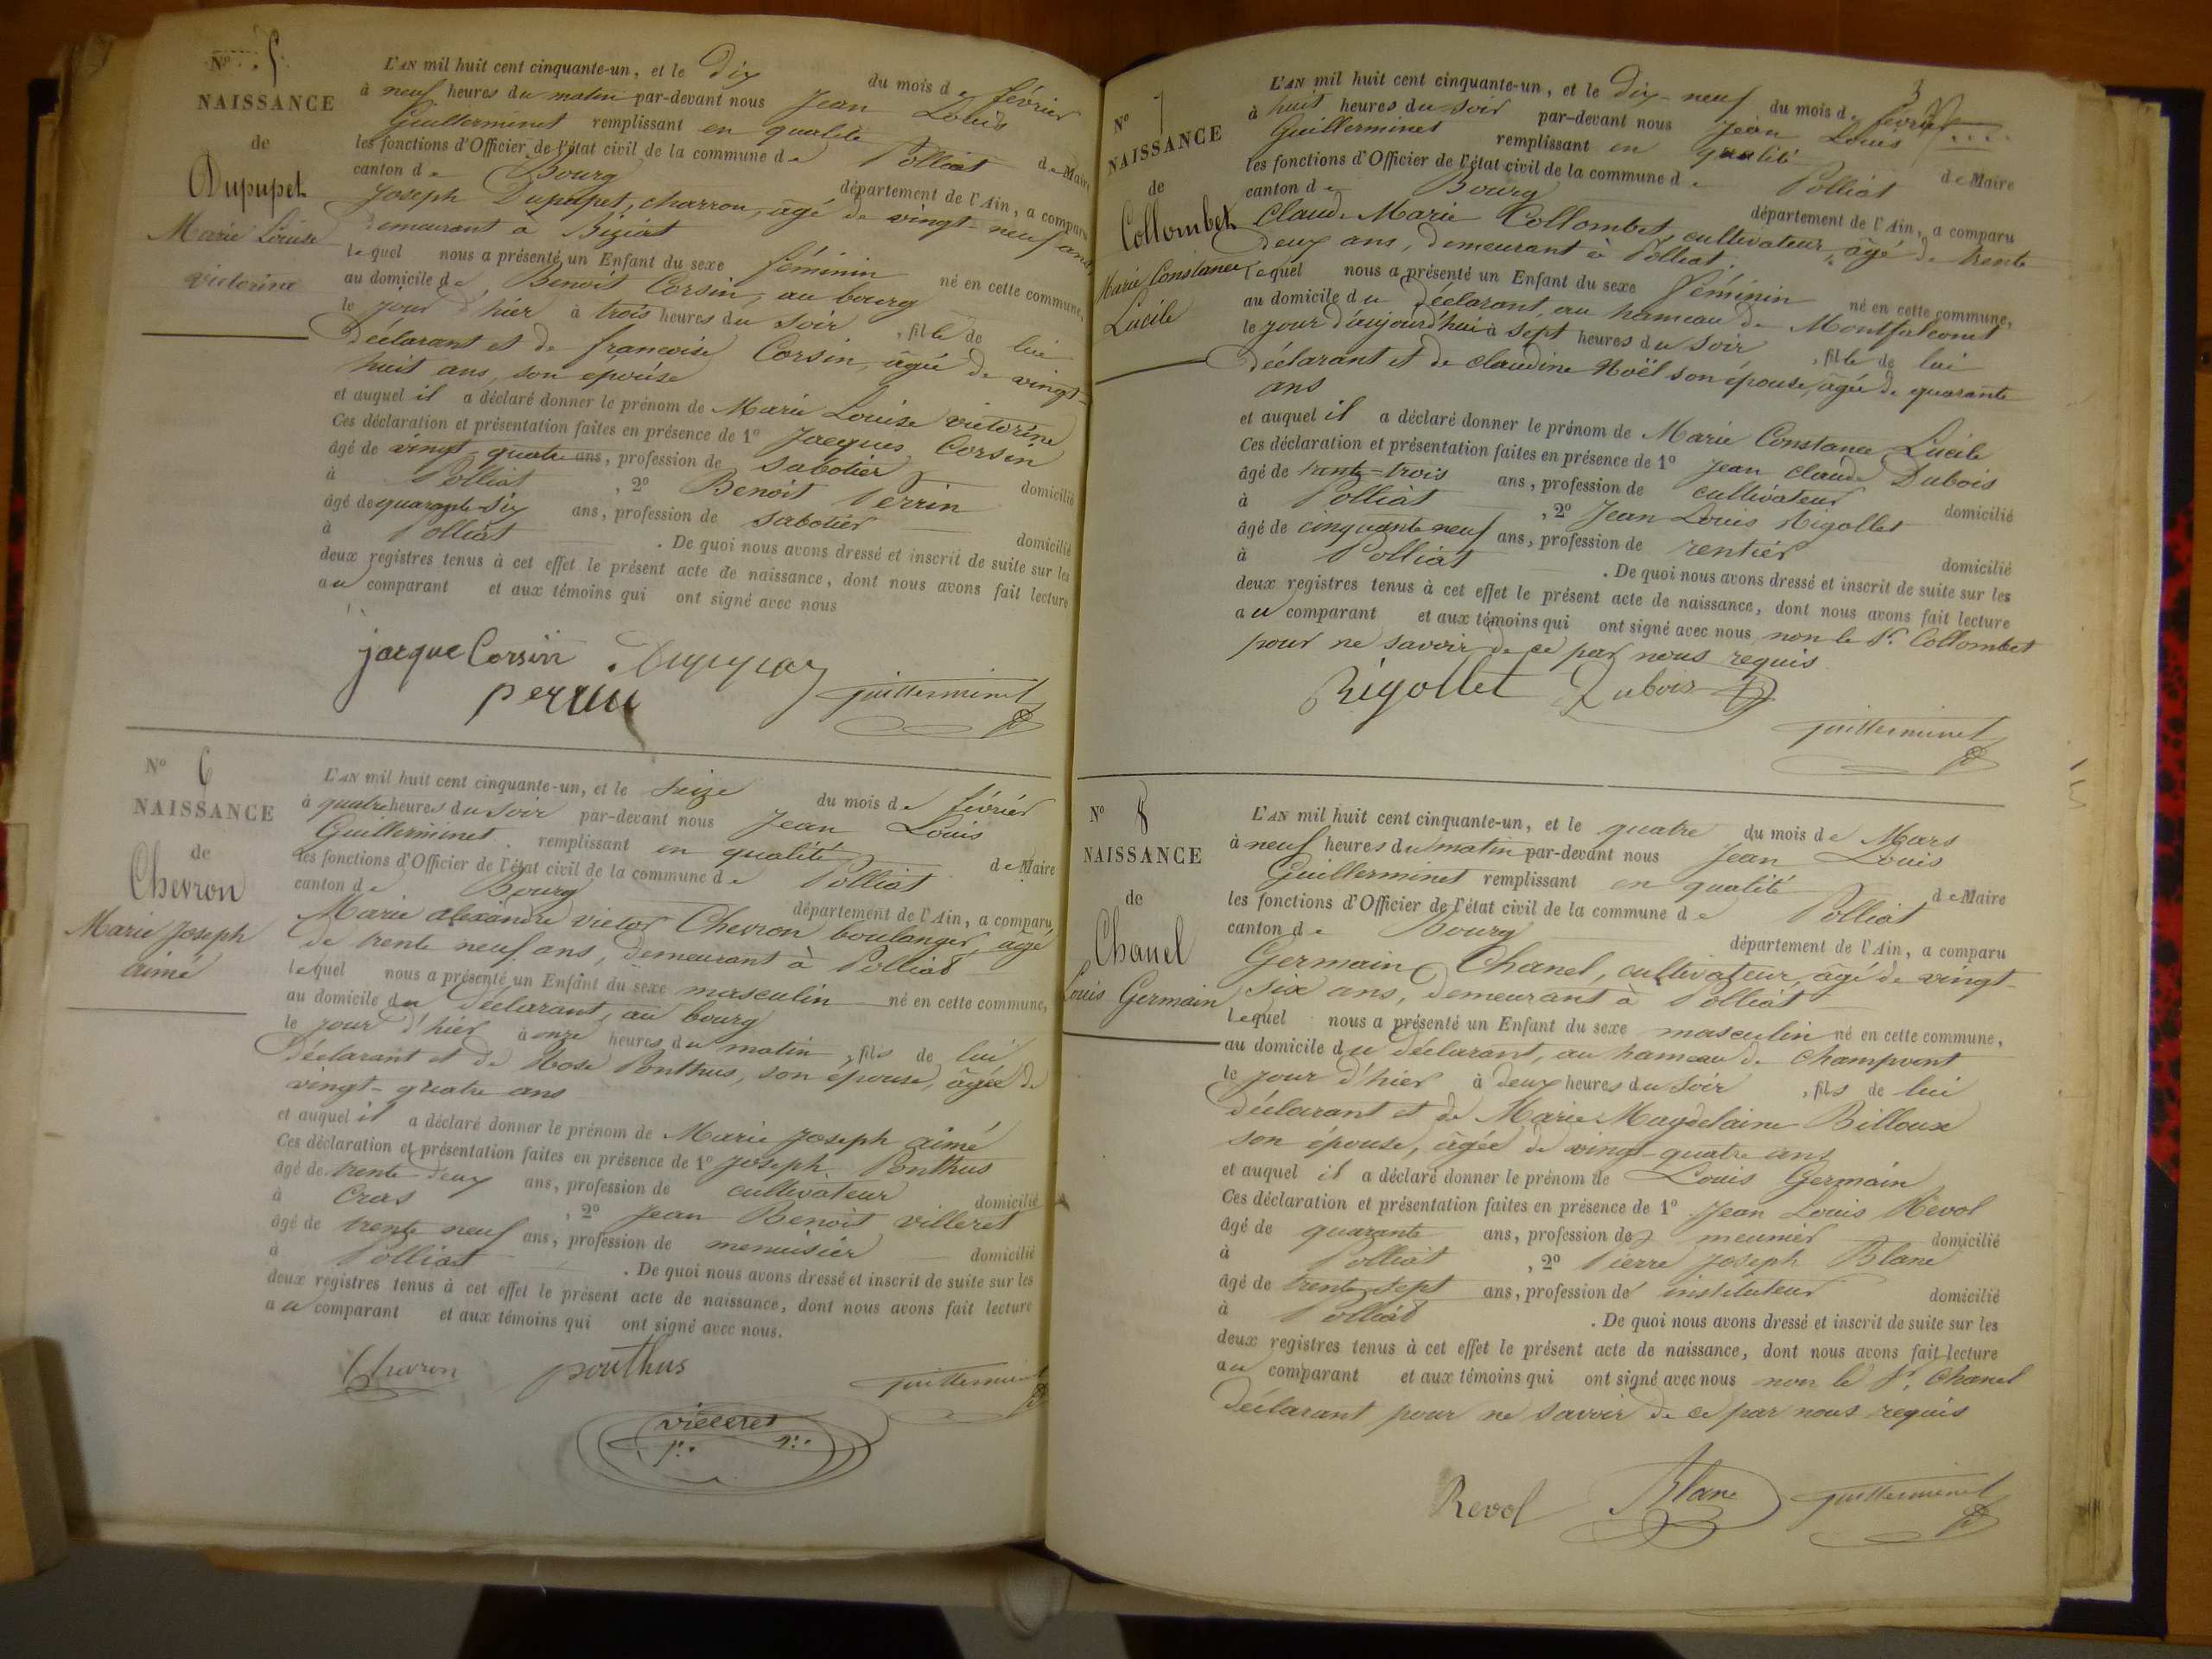 Nº 5
NAISSANCE
de
Dupupet
Marie Louise
victorine
L'AN mil huit cent cinquante-un, et le dix du mois de février
à neuf heures du matin par-devant nous Jean Louis
Guillerminet remplissant en qualité de Maire
les fonctions d'Officier de l'état civil de la commune de Polliat
canton de Bourg département de l'Ain, a comparu
Joseph Dupupet, charron, âgé de vingt-neuf ans,
demeurant à Biziat
lequel nous a présenté un Enfant du sexe féminin né en cette commune,
au domicile de Benoît Corsin, au bourg
le jour d'hier à trois heures du soir, fille de lui
déclarant et de francoise Corsin, âgée de vingt-
huit ans, son epouse
et auquel il a déclaré donner le prénom de Marie Louise victorine
Ces déclaration et présentation faites en présence de 1º Jacques Corsin
âgé de vingt-quatre ans, profession de sabotier domicilié
à Polliat, 2º Benoit Perrin
âgé de quarante-six ans, profession de sabotier domicilié
à Polliat. De quoi nous avons dressé et inscrit de suite sur les
deux registres tenus à cet effet le présent acte de naissance, dont nous avons fait lecture
au comparant et aux témoins qui ont signé avec nous
jacque Corsin
perrin Guillerminet
Nº 6
NAISSANCE
de
Chevron
Marie Joseph
aimé
L'AN mil huit cent cinquante-un, et le seize du mois de février
à quatre heures du soir par-devant nous Jean Louis
Guillerminet remplissant en qualité de Maire
les fonctions d'Officier de l'état civil de la commune de Polliat
canton de Bourg département de l'Ain, a comparu
Marie alexandre victor Chevron boulanger, âgé
de trente neuf ans, demeurant à Polliat
lequel nous a présenté un Enfant du sexe masculin né en cette commune,
au domicile du déclarant, au bourg
le jour d'hier à onze heures du matin, fils de lui
déclarant et de Rose Ponthus, son épouse, âgée de
vingt-quatre ans
et auquel il a déclaré donner le prénom de Marie Joseph aimé
Ces déclaration et présentation faites en présence de 1º Joseph Ponthus
âgé de trente deux ans, profession de cultivateur domicilié
à Cras, 2º Jean Benoît villeret
âgé de trente neuf ans, profession de menuisier domicilié
à Polliat. De quoi nous avons dressé et inscrit de suite sur les
deux registres tenus à cet effet le présent acte de naissance, dont nous avons fait lecture
au comparant et aux témoins qui ont signé avec nous.
Chevron ponthus Guillerminet
villeret
3
Nº 7
NAISSANCE
de
Collombet
Marie Constance
Lucile
L'AN mil huit cent cinquante-un, et le dix-neuf du mois de février
à huit heures du soir par-devant nous Jean Louis
Guillerminet remplissant en qualité de Maire
les fonctions d'Officier de l'état civil de la commune de Polliat
canton de Bourg département de l'Ain, a comparu
Claude Marie Collombet, cultivateur, âgé de trente
deux ans, demeurant à Polliat
lequel nous a présenté un Enfant du sexe féminin né en cette commune,
au domicile du déclarant, au hameau de Montfalconet
le jour d'aujourd'hui à sept heures du soir, fille de lui
déclarant et de claudine Noël son épouse, âgée de quarante
ans
et auquel il a déclaré donner le prénom de Marie Constance Lucile
Ces déclaration et présentation faites en présence de 1º Jean claude Dubois
âgé de trente-trois ans, profession de cultivateur domicilié
à Polliat, 2º Jean Louis Rigollet
âgé de cinquante neuf ans, profession de rentier domicilié
à Polliat. De quoi nous avons dressé et inscrit de suite sur les
deux registres tenus à cet effet le présent acte de naissance, dont nous avons fait lecture
au comparant et aux témoins qui ont signé avec nous non le Sr. Collombet
pour ne savoir de ce par nous requis
Rigollet Dubois
Guillerminet
Nº 8
NAISSANCE
de
Chanel
Louis Germain
L'AN mil huit cent cinquante-un, et le quatre du mois de Mars
à neuf heures du matin par-devant nous Jean Louis
Guillerminet remplissant en qualité de Maire
les fonctions d'Officier de l'état civil de la commune de Polliat
canton de Bourg département de l'Ain, a comparu
Germain Chanel, cultivateur, âgé de vingt-
six ans, demeurant à Polliat
lequel nous a présenté un Enfant du sexe masculin né en cette commune,
au domicile du déclarant, au hameau de Champvent
le jour d'hier à deux heures du soir, fils de lui
déclarant et de Marie Magdelaine Billoux
son épouse, âgée de vingt-quatre ans
et auquel il a déclaré donner le prénom de Louis Germain
Ces déclaration et présentation faites en présence de 1º Jean Louis Revol
âgé de quarante ans, profession de meunier domicilié
à Polliat, 2º Pierre Joseph Blanc
âgé de trente-sept ans, profession de instituteur domicilié
à Polliat. De quoi nous avons dressé et inscrit de suite sur les
deux registres tenus à cet effet le présent acte de naissance, dont nous avons fait lecture
au comparant et aux témoins qui ont signé avec nous non le Sr. Chanel
déclarant pour ne savoir de ce par nous requis
Revol Blanc Guillerminet